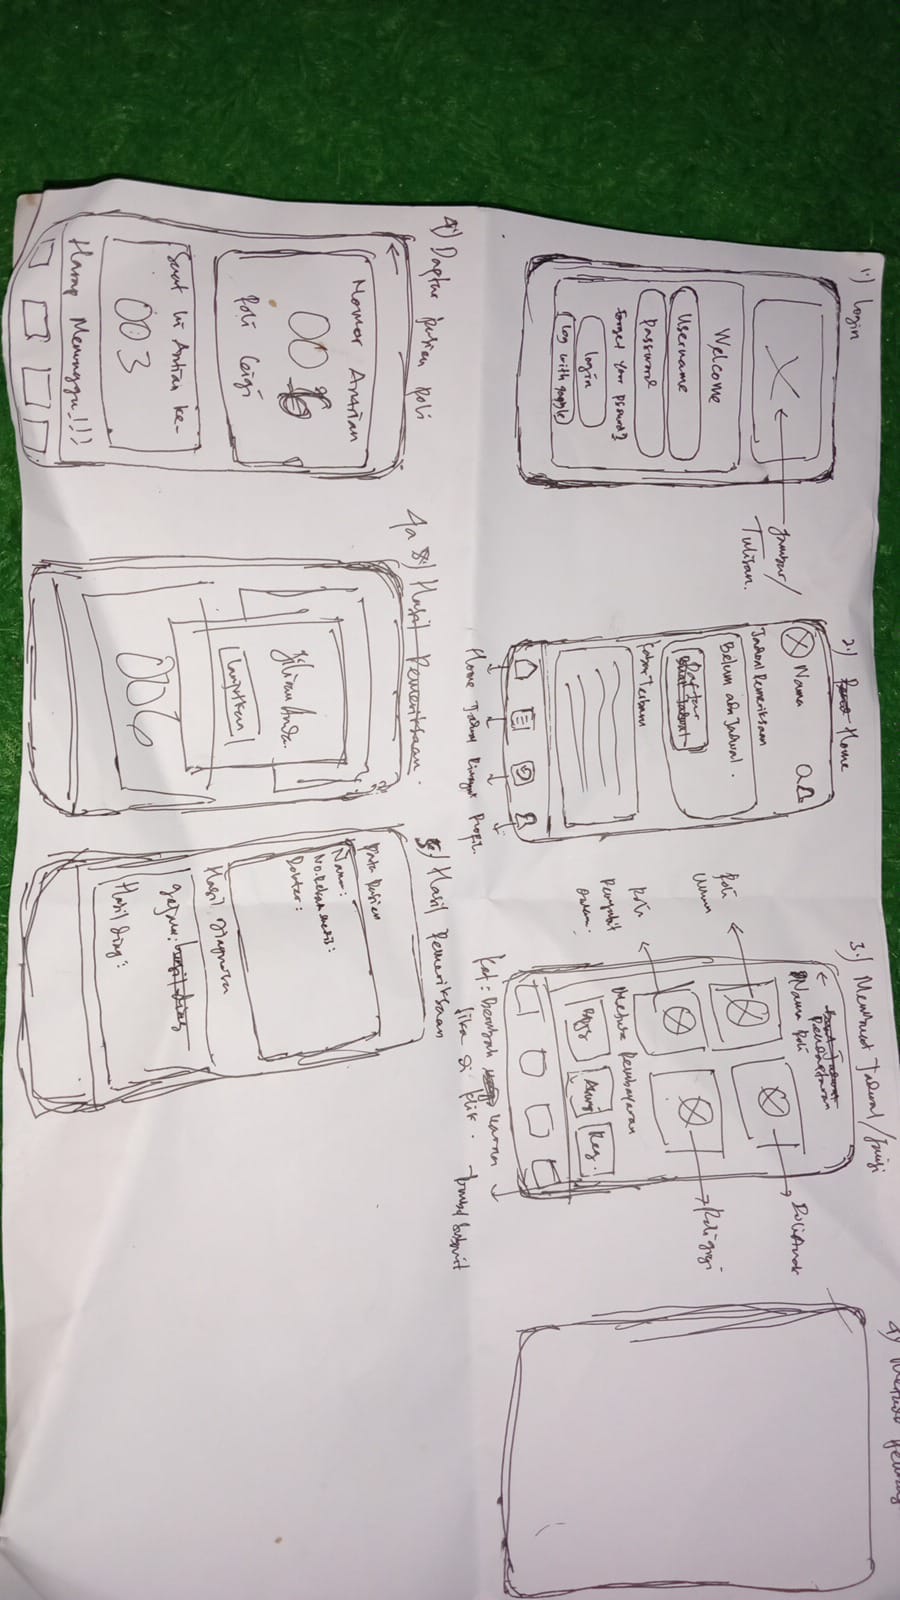 1.) Login
gambar/
Tulisan.
Welcome
Username
Password
login
Log with google
2.) Home
Nama
Jadwal Pemeriksaan
Belum ada Jadwal.
Daftar
Buat Jadwal
Kabar Terbaru
Home Jadwal Riwayat Profil.
3.) Membuat Jadwal/
Buat Jadwal
Pendaftaran
Nama Poli
Poli Anak
Poli
Umum
Poli gigi
Poli
Penyakit
Dalam.
Metode Pembayaran
Bpjs
Reg.
Ket: Berubah warna
Jika di klik.
Tombol Submit
4) Daftar pasien poli
Nomor Antrian
006
Poli Gigi
Saat ini Antrian ke-
003
Harap Menunggu!!!
4a 5.) Hasil Pemeriksaan
Giliran Anda.
Lanjutkan
006
5) Hasil Pemeriksaan
Data Pasien
Nama:
No. Rekam medis:
Dokter:
Hasil Diagnosa
gejala: hasil diag
Hasil diag: